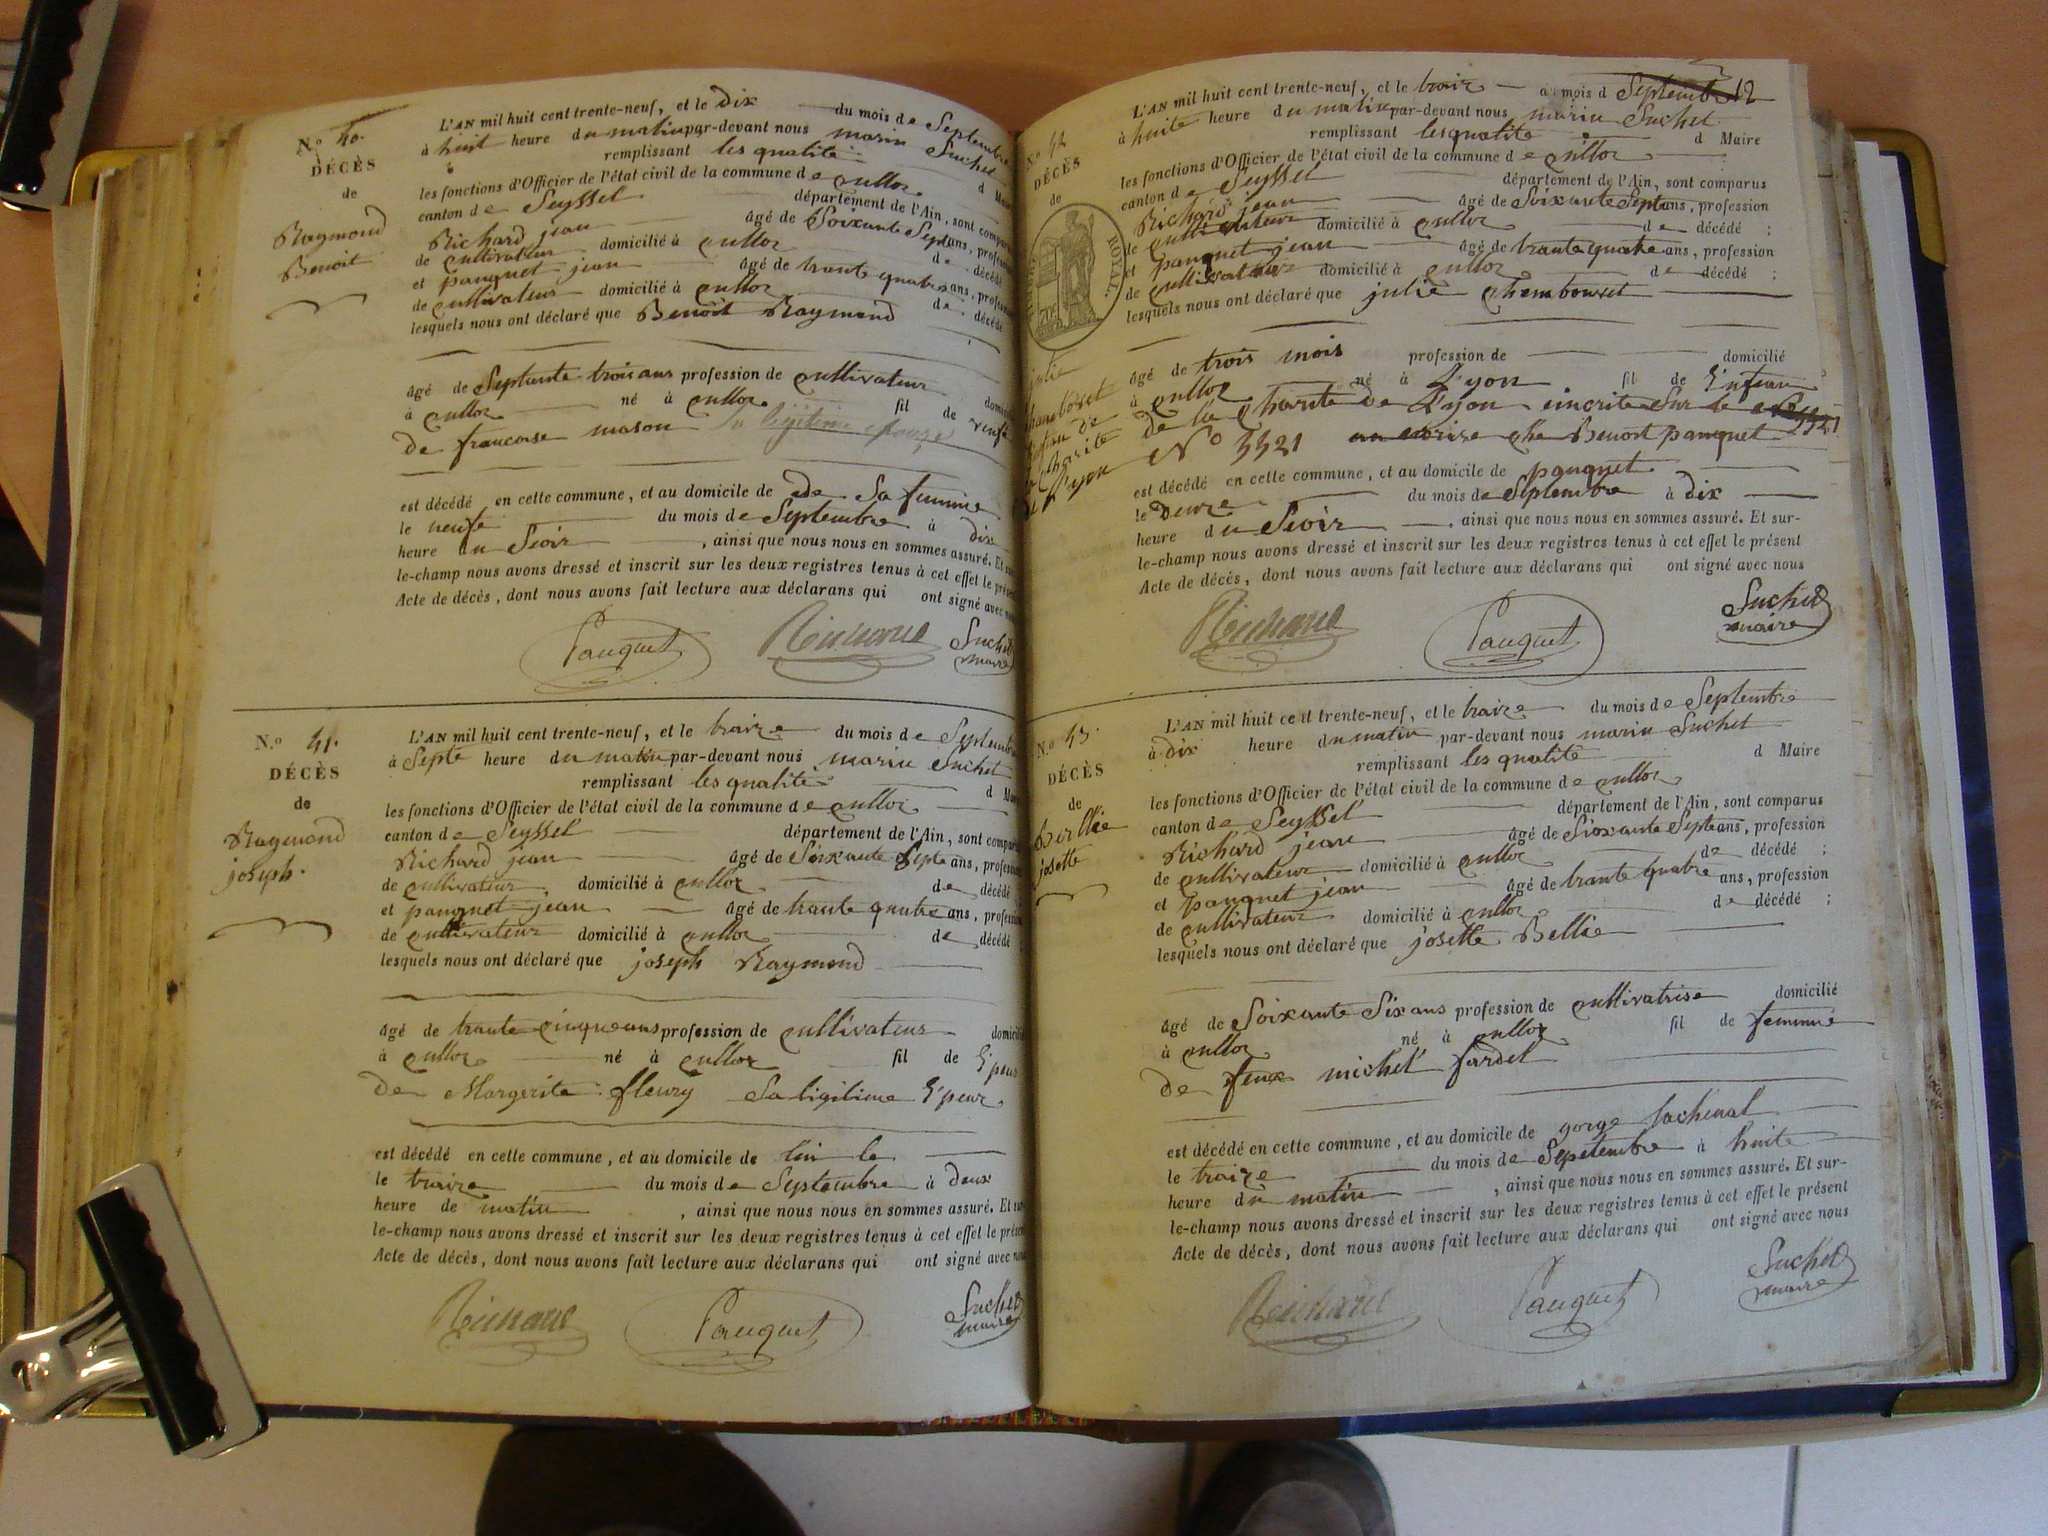 N.o 40.
DÉCÈS
de
Raymond
Benoit
L'AN mil huit cent trente-neuf, et le Dix du mois de Septembre
à huit heure du matin par-devant nous marin Suchet
remplissant les qualité d Maire
les fonctions d'Officier de l'état civil de la commune de culloz
canton de Seyssel département de l'Ain, sont comparus
Richard jean âgé de Soixante Septe ans, profession
de cultivateur domicilié à culloz de décédé
et pauquet jean âgé de trante quatre ans, profession
de cultivateur domicilié à culloz de décédé
lesquels nous ont déclaré que Benoit Raymond
âgé de Septante trois ans profession de cultivateur domicilié
à culloz né à culloz fil de veufe
de francoise mason sa légitime epouze
est décédé en cette commune, et au domicile de de Sa femme
le neufe du mois de Septembre à dix
heure du Seoir, ainsi que nous nous en sommes assuré. Et sur-
le-champ nous avons dressé et inscrit sur les deux registres tenus à cet effet le présent
Acte de décès, dont nous avons fait lecture aux déclarans qui ont signé avec nous
Pauquet Richard Suchet
maire
N.o 41.
DÉCÈS
de
Raymond
joseph.
L'AN mil huit cent trente-neuf, et le traize du mois de Septembre
à Septe heure du matin par-devant nous marin Suchet
remplissant les qualité d Maire
les fonctions d'Officier de l'état civil de la commune de culloz
canton de Seyssel département de l'Ain, sont comparus
Richard jean âgé de Soixante Septe ans, profession
de cultivateur domicilié à culloz de décédé
et pauquet jean âgé de trante quatre ans, profession
de cultivateur domicilié à culloz de décédé ;
lesquels nous ont déclaré que joseph Raymond
âgé de trante cinque ans profession de cultivateur domicilié
à culloz né à culloz fil de l'épeur
de Margerite fleury Sa ligitime l'épeur
est décédé en cette commune, et au domicile de lui le
le traize du mois de Septembre à Deux
heure de matin, ainsi que nous nous en sommes assuré. Et sur-
le-champ nous avons dressé et inscrit sur les deux registres tenus à cet effet le présent
Acte de décès, dont nous avons fait lecture aux déclarans qui ont signé avec nous
Richard Pauquet Suchet
maire
12
N.o 42
DÉCÈS
de
ROYAL.
julie
chambouret
de
la Charité
de Lyon
L'AN mil huit cent trente-neuf, et le traize du mois d Septembre
à huite heure du matin par-devant nous marin Suchet
remplissant les qualité d Maire
les fonctions d'Officier de l'état civil de la commune de culloz
canton de Seyssel département de l'Ain, sont comparus
Richard jean âgé de Soixante Septe ans, profession
de cultivateur domicilié à culloz de décédé ;
et pauquet jean âgé de trante quatre ans, profession
de cultivateur domicilié à culloz de décédé ;
lesquels nous ont déclaré que julie chembouret
âgé de trois mois profession de domicilié
à culloz né à Lyon fil de l'enfean
de la Charité de Lyon eincrite Sur le
N° 3321 che Benoit pauquet
est décédé en cette commune, et au domicile de pauquet
le Douze du mois de Septembre à dix
heure du Seoir, ainsi que nous nous en sommes assuré. Et sur-
le-champ nous avons dressé et inscrit sur les deux registres tenus à cet effet le présent
Acte de décès, dont nous avons fait lecture aux déclarans qui ont signé avec nous
Richard Pauquet Suchet
maire
N.o 43.
DÉCÈS
de
Bellie
josette
L'AN mil huit cent trente-neuf, et le traize du mois de Septembre
à dix heure du matin par-devant nous marin Suchet
remplissant les qualité d Maire
les fonctions d'Officier de l'état civil de la commune de culloz
canton de Seyssel département de l'Ain, sont comparus
Richard jean âgé de Sioxante Septe ans, profession
de cultivateur domicilié à culloz de décédé ;
et pauquet jean âgé de trante quatre ans, profession
de cultivateur domicilié à culloz de décédé ;
lesquels nous ont déclaré que josette Bellie
âgé de Soixante Six ans profession de cultivatrise domicilié
à culloz né à culloz fil de femme
de feux michel fardel
est décédé en cette commune, et au domicile de gorge lachenal
le traize du mois de Septembre à huite
heure du matin, ainsi que nous nous en sommes assuré. Et sur-
le-champ nous avons dressé et inscrit sur les deux registres tenus à cet effet le présent
Acte de décès, dont nous avons fait lecture aux déclarans qui ont signé avec nous
Richard Pauquet Suchet
maire